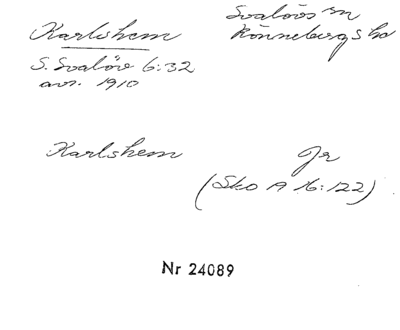 Karlshem
Svalövs sn
Rönnebergs hd
S. Svalöv 6:32
avs. 1910
Karlshem
Jr
(Sko A 16:122)
Nr 24089